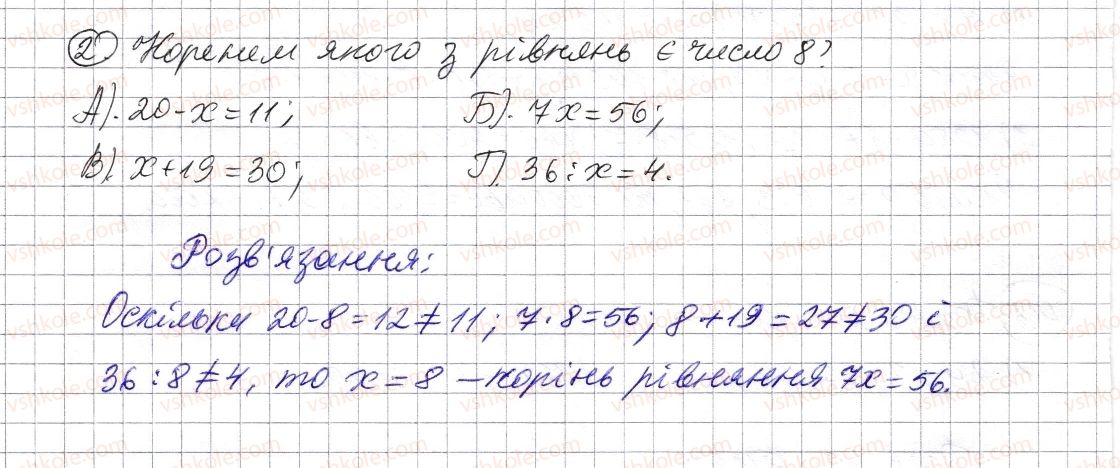 2 Коренем якого з рівнянь є число 8?
А). 20-x=11; Б). 7x=56;
В). x+19=30; Г). 36:x=4.
Розв'язання:
Оскільки 20-8=12≠11; 7·8=56; 8+19=27≠30 і
36:8≠4, то x=8 – корінь рівняння 7x=56.